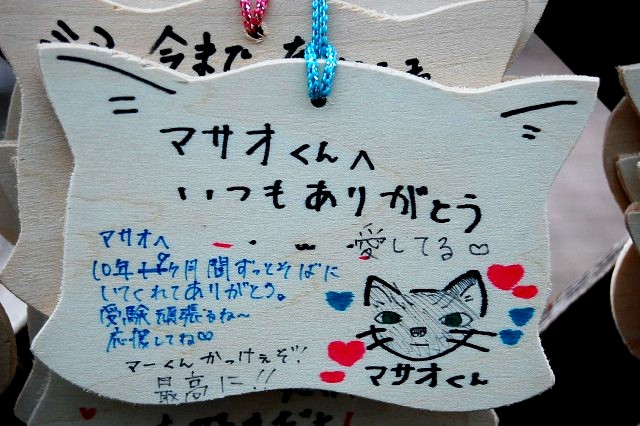 今まで
マサオくんへ
いつもありがとう
愛してる♡
マサオへ
10年ヶ月間ずっとそばに
いてくれてありがとう。
受験頑張るね~
応援してね♡
マーくんかっけぇぞ!
最高に!!
マサオくん